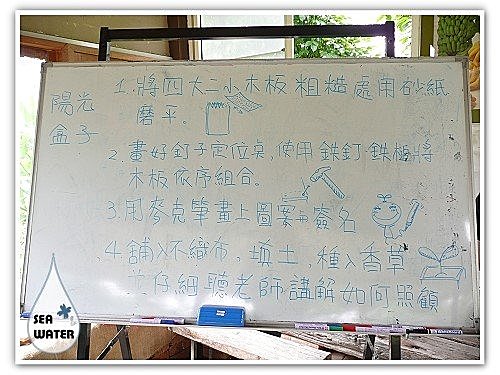 陽光
盒子
1. 將四大二小木板粗糙處用砂紙
磨平。
2. 畫好釘子定位点，使用鉄釘、鉄槌將
木板依序組合。
3. 用麥克筆畫上圖案再簽名
4. 舖入不織布，填土，種入香草
並仔細聽老師講解如何照顧
SEA
WATER